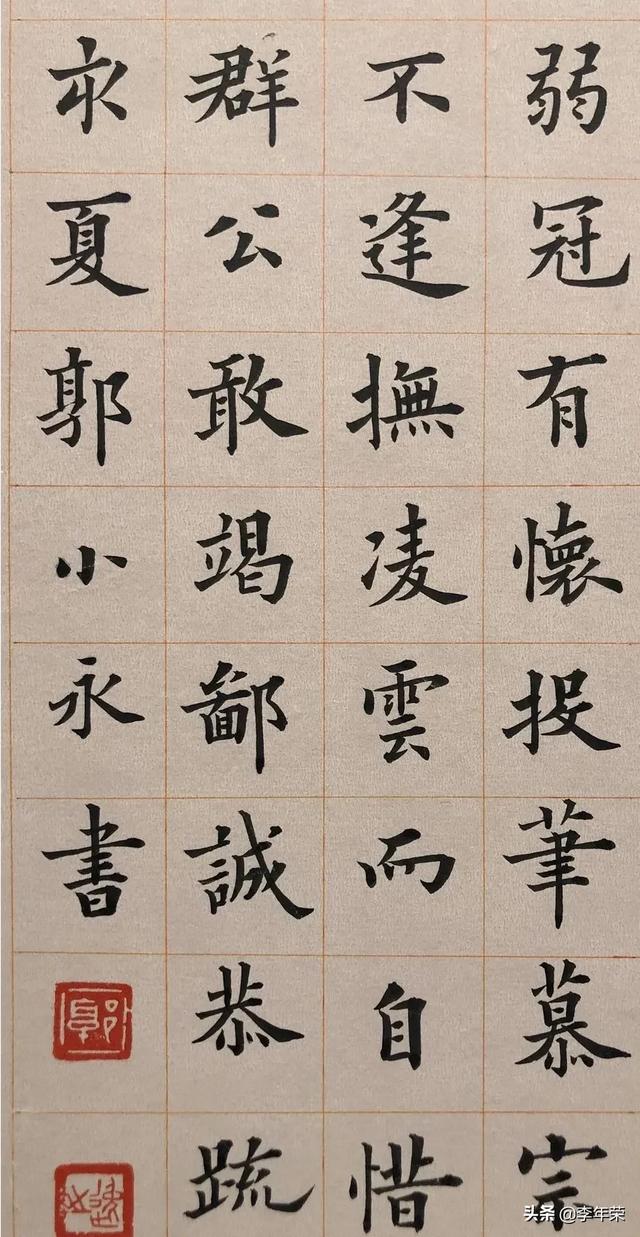 弱冠有懷投筆慕宗
不逢撫凌雲而自惜
群公敢竭鄙誠恭疏
夏郭小永書
头条 @李年荣